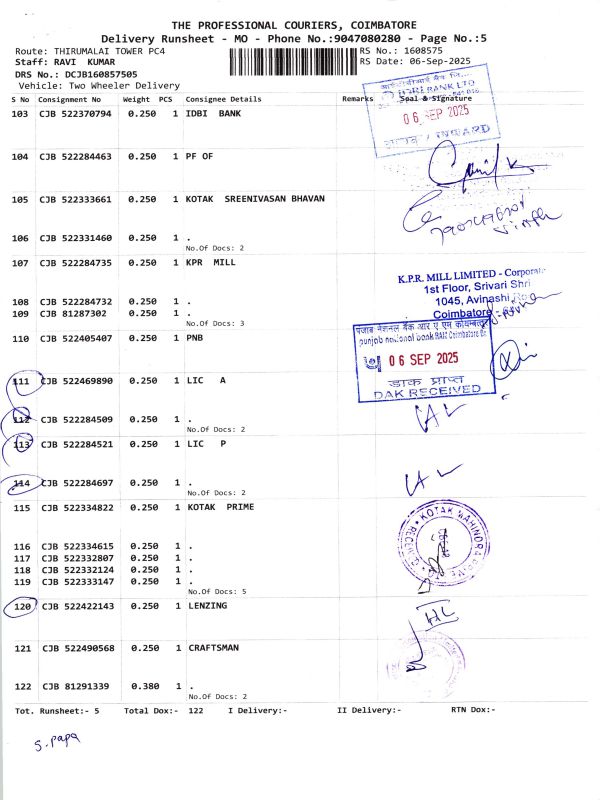 THE PROFESSIONAL COURIERS, COIMBATORE
Delivery Runsheet - MO - Phone No.:9047080280 - Page No.:5
Route: THIRUMALAI TOWER PC4
RS No.: 1608575
Staff: RAVI KUMAR
RS Date: 06-Sep-2025
DRS No.: DCJB160857505
Vehicle: Two Wheeler Delivery
S No Consignment No Weight PCS Consignee Details Remarks Seal & Signature
103 CJB 522370794 0.250 1 IDBI BANK
BANK LTD
06 SEP 2025
INWARD
104 CJB 522284463 0.250 1 PF OF
105 CJB 522333661 0.250 1 KOTAK SREENIVASAN BHAVAN
106 CJB 522331460 0.250 1 .
No.Of Docs: 2
107 CJB 522284735 0.250 1 KPR MILL
K.P.R. MILL LIMITED - Corporate
1st Floor, Srivari Shri
1045, Avinashi
Coimbatore
108 CJB 522284732 0.250 1 .
109 CJB 81287302 0.250 1 .
No.Of Docs: 3
110 CJB 522405407 0.250 1 PNB
punjab national bank
06 SEP 2025
डाक प्राप्त
DAK RECEIVED
111 CJB 522469890 0.250 1 LIC A
112 CJB 522284509 0.250 1 .
No.Of Docs: 2
113 CJB 522284521 0.250 1 LIC P
114 CJB 522284697 0.250 1 .
No.Of Docs: 2
115 CJB 522334822 0.250 1 KOTAK PRIME
KOTAK MAHINDRA
116 CJB 522334615 0.250 1 .
117 CJB 522332807 0.250 1 .
118 CJB 522332124 0.250 1 .
119 CJB 522333147 0.250 1 .
No.Of Docs: 5
120 CJB 522422143 0.250 1 LENZING
121 CJB 522490568 0.250 1 CRAFTSMAN
122 CJB 81291339 0.380 1 .
No.Of Docs: 2
Tot. Runsheet:- 5 Total Dox:- 122 I Delivery:- II Delivery:- RTN Dox:-
S. papa